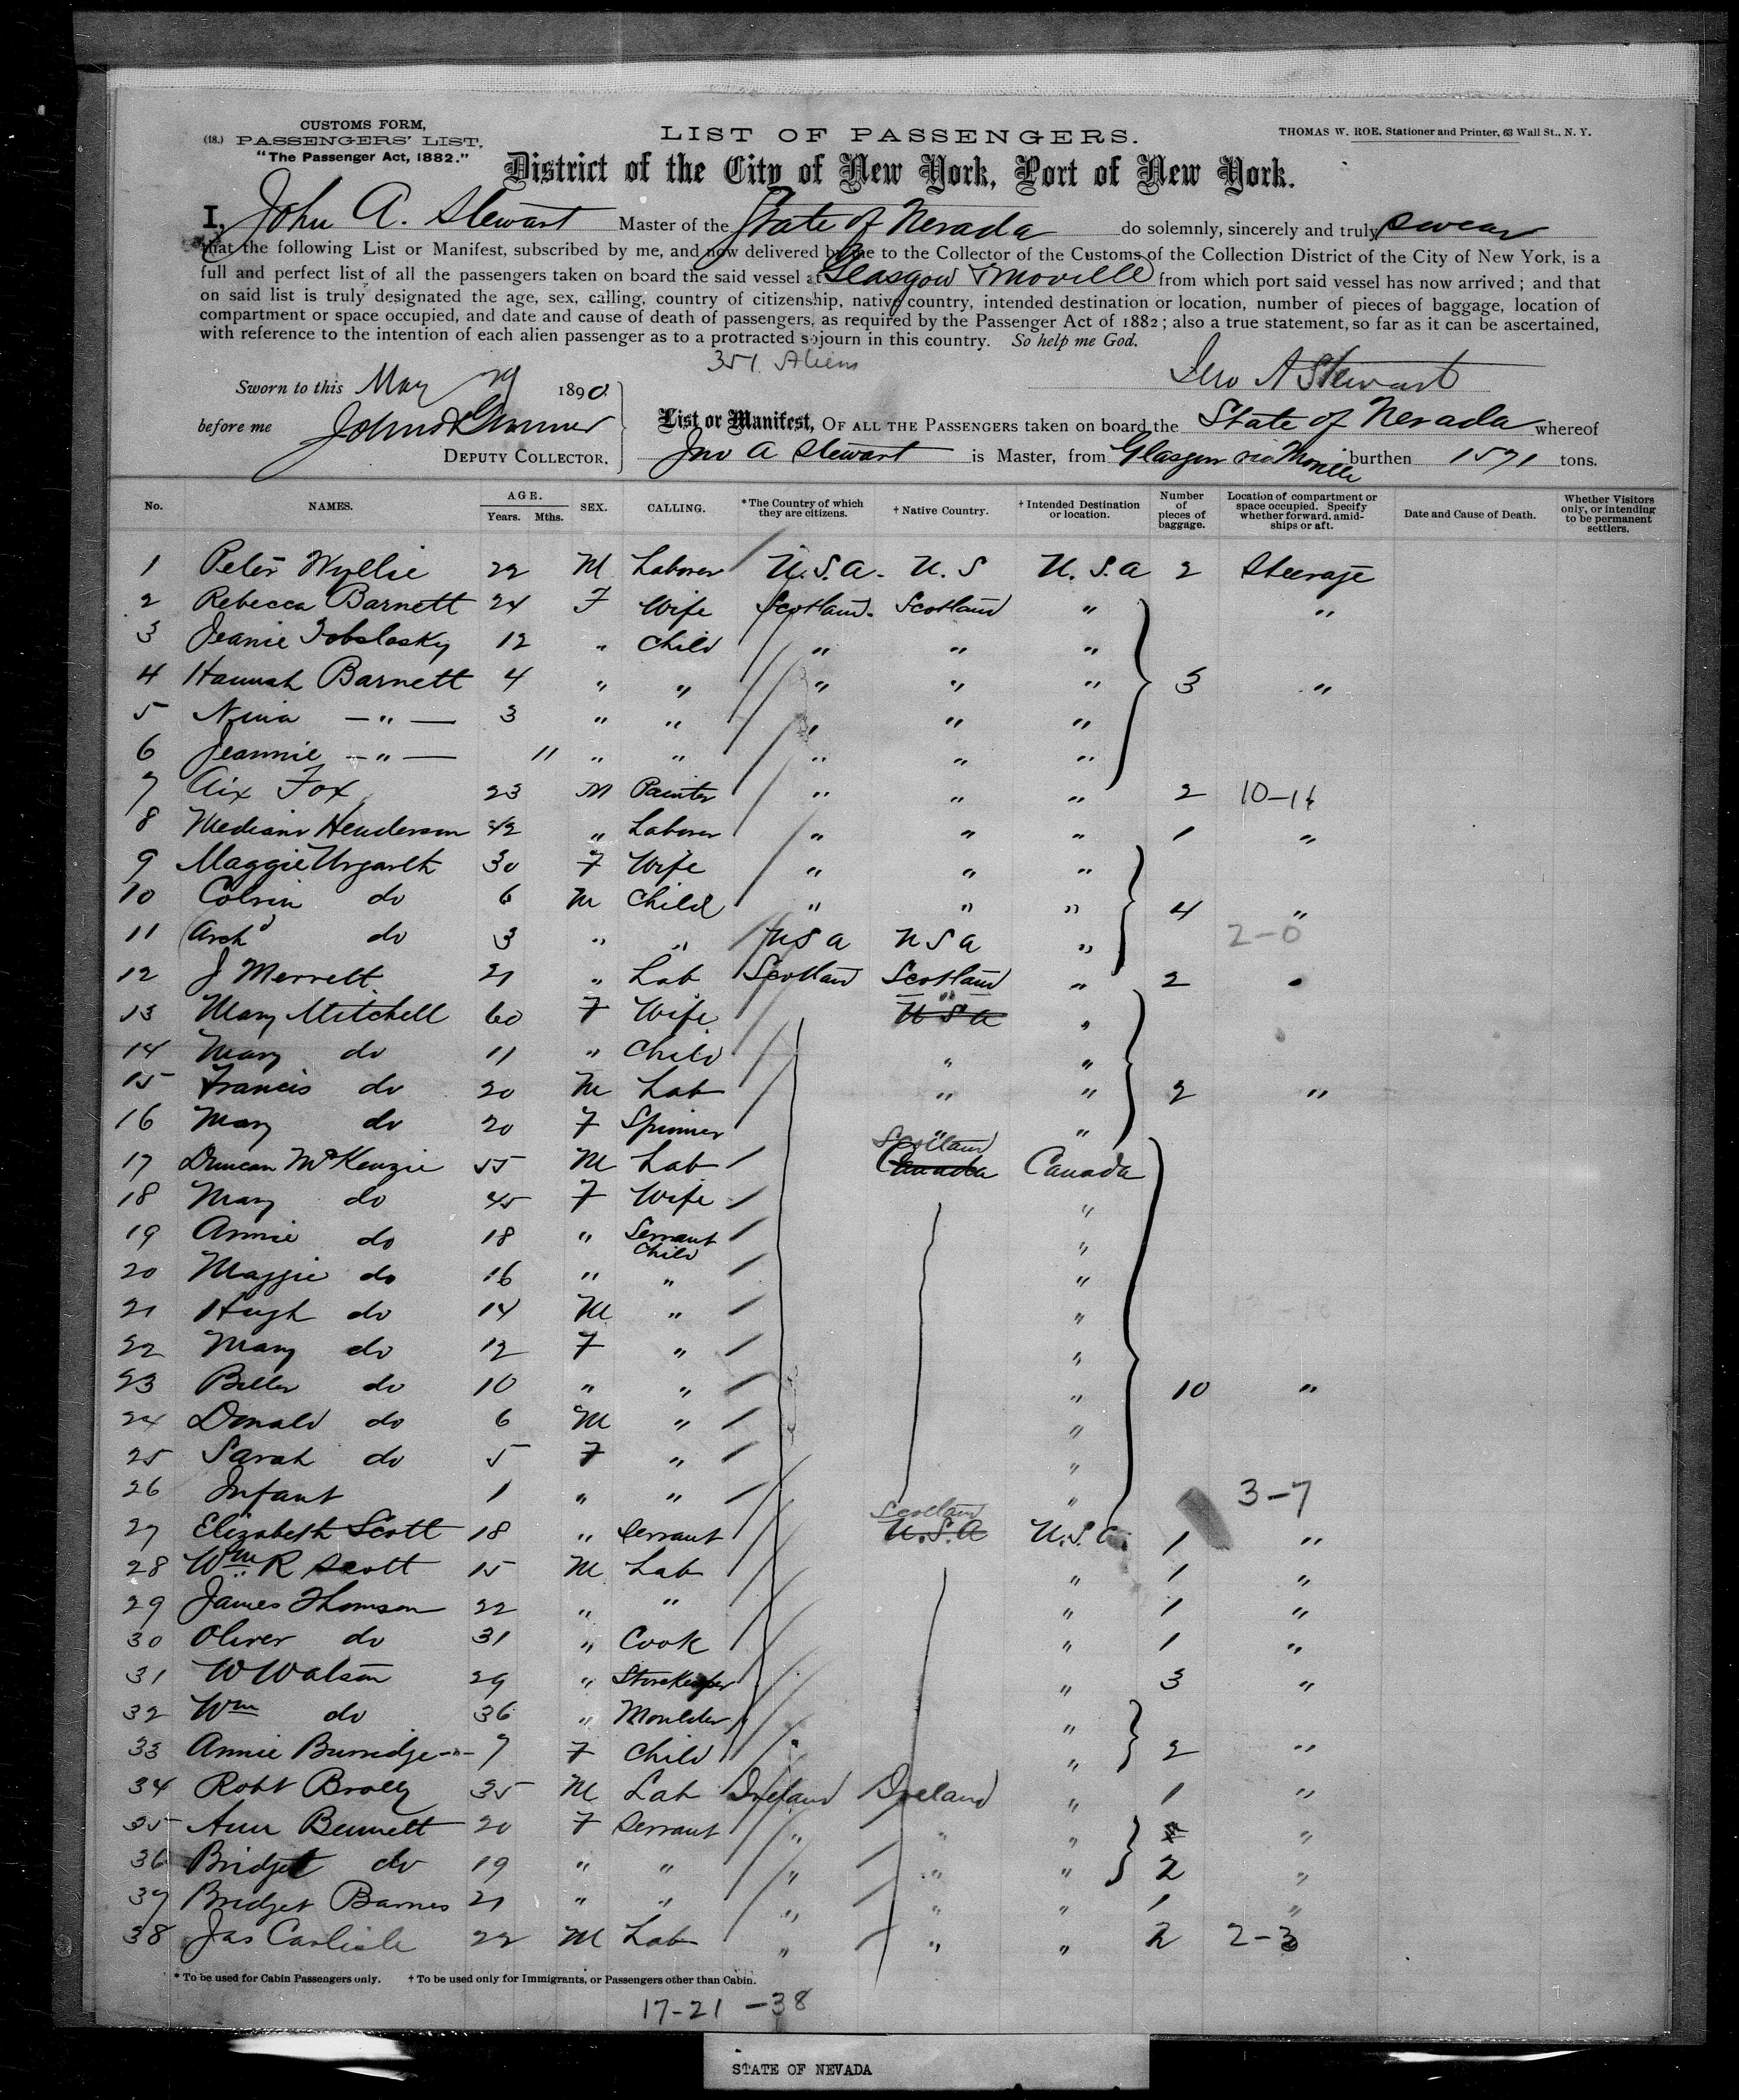 CUSTOMS FORM,
(18.) PASSENGERS' LIST.
"The Passenger Act, 1882."
LIST OF PASSENGERS.
THOMAS W. ROE, Stationer and Printer, 63 Wall St., N. Y.
District of the City of New York, Port of New York.
I, John A. Stewart Master of the State of Nevada do solemnly, sincerely and truly swear
that the following List or Manifest, subscribed by me, and now delivered by me to the Collector of the Customs of the Collection District of the City of New York, is a
full and perfect list of all the passengers taken on board the said vessel at Glasgow & Moville from which port said vessel has now arrived; and that
on said list is truly designated the age, sex, calling, country of citizenship, native country, intended destination or location, number of pieces of baggage, location of
compartment or space occupied, and date and cause of death of passengers, as required by the Passenger Act of 1882; also a true statement, so far as it can be ascertained,
with reference to the intention of each alien passenger as to a protracted sojourn in this country. So help me God.
351 Aliens
Jno A Stewart
Sworn to this May 1890
before me
DEPUTY COLLECTOR.
List or Manifest, OF ALL THE PASSENGERS taken on board the State of Nevada whereof
Jno A Stewart is Master, from Glasgow via Moville burthen 1571 tons.
No. NAMES. AGE. Years. Mths. SEX. CALLING. * The Country of which they are citizens. † Native Country. † Intended Destination or location. Number of pieces of baggage. Location of compartment or space occupied. Specify whether forward, amidships or aft. Date and Cause of Death. Whether Visitors only, or intending to be permanent settlers.
1 Peter Wyllie 22 M Laborer U.S.A. U.S U.S.A 2 Steerage
2 Rebecca Barnett 24 F Wife Scotland Scotland " "
3 Jeanie 12 " Child " " "
4 Hannah Barnett 4 " " " " " 3 "
5 Nina —"— 3 " " " " "
6 Jeannie —"— 11 " " " " "
7 Fox 23 M Painter " " " 2 10-16
8 Henderson 42 " Laborer " " " 1 "
9 Maggie 30 F Wife " " "
10 Colvin do 6 M Child " " " 4 "
11 Archd do 3 " " USA USA " 2-0
12 J Merrett 21 " Lab Scotland Scotland " 2
13 Mary Mitchell 60 F Wife " USA "
14 Mary do 11 " Child " "
15 Francis do 20 M Lab " " 2 "
16 Mary do 20 F Spinner " "
17 Duncan McKenzie 55 M Lab Scotland Canada Canada
18 Mary do 45 F Wife "
19 Annie do 18 " Servant "
20 Maggie do 16 " Child " "
21 Hugh do 14 M " "
22 Mary do 12 F " "
23 Bella do 10 " " " 10 "
24 Donald do 6 M " "
25 Sarah do 5 F " "
26 Infant 1 " " " 3-7
27 Elizabeth Scott 18 " Servant Scotland U.S.A U.S.A 1 "
28 Wm R Scott 15 M Lab " 1 "
29 James Thomson 22 " " " 1 "
30 Oliver do 31 " Cook " 1 "
31 W Watson 29 " Storekeeper " 3 "
32 Wm do 36 " Moulder "
33 Annie Burridge -"- 7 F Child " 2 "
34 Robt Brolly 35 M Lab Ireland Ireland " 1 "
35 Ann Bennett 20 F Servant " " " "
36 Bridget do 19 " " " " " 2 "
37 Bridget Barnes 21 " " " " " 1 "
38 Jas Carlisle 22 M Lab " " " 2 2-3
* To be used for Cabin Passengers only. † To be used only for Immigrants, or Passengers other than Cabin.
17-21 -38
STATE OF NEVADA